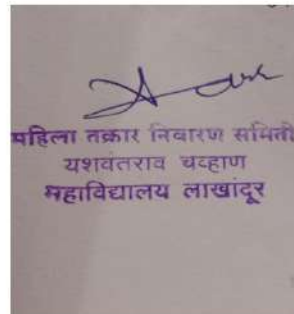 महिला तक्रार निवारण समिती
यशवंतराव चव्हाण
महाविद्यालय लाखांदूर